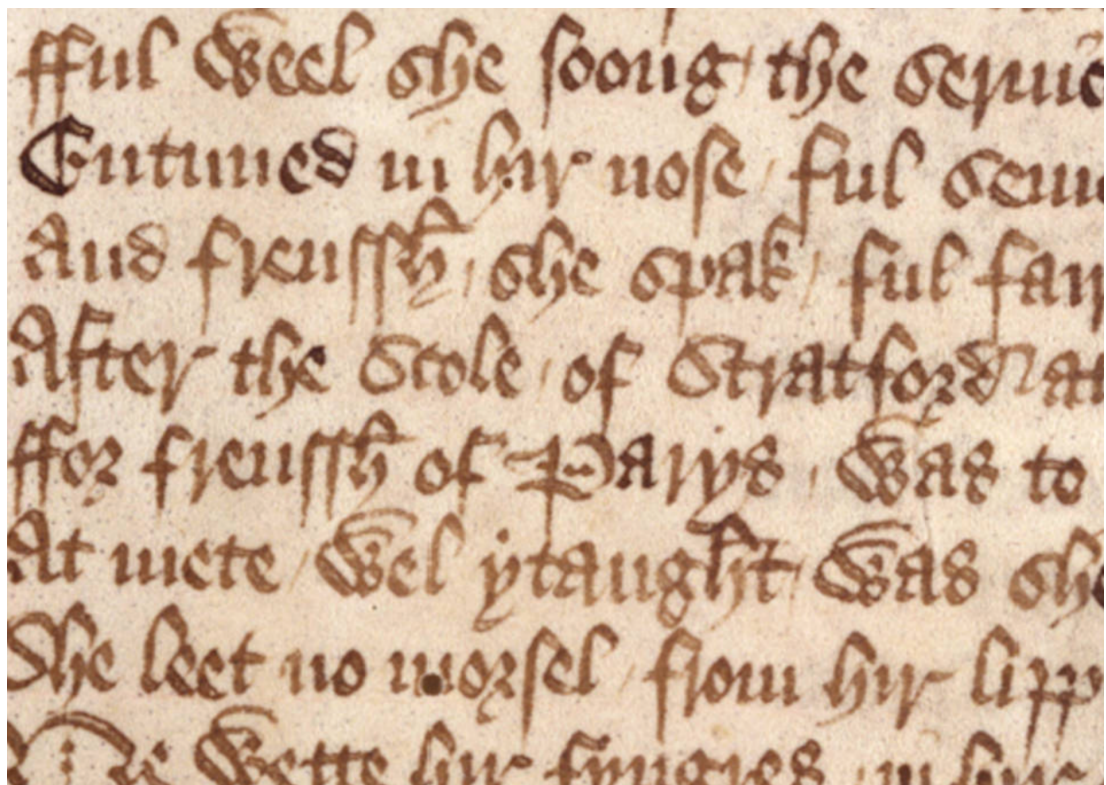 fful weel she soong / the seruic
Entuned in hir nose / ful semе
And frenssh / she spak / ful fair
After the Scole / of Stratford at
ffor frenssh of Parys / was to
At mete / wel ytaught / was she
She leet no morsel / from hir lipp
Ne wette hir fyngres / in hir